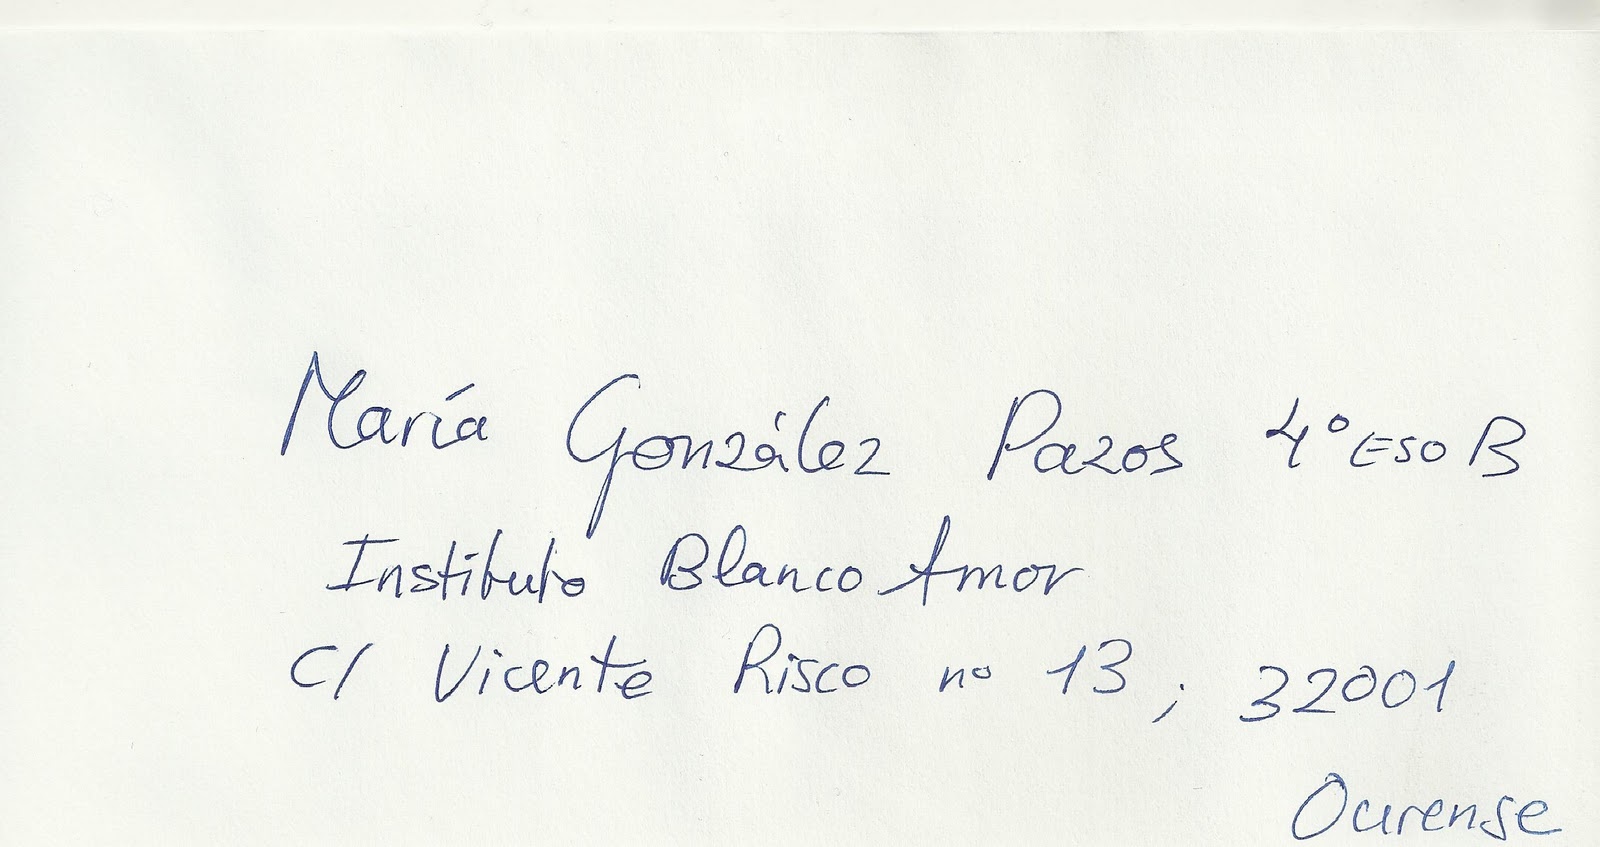 María González Pazos 4º ESO B
Instituto Blanco Amor
C/ Vicente Risco nº 13, 32001
Ourense